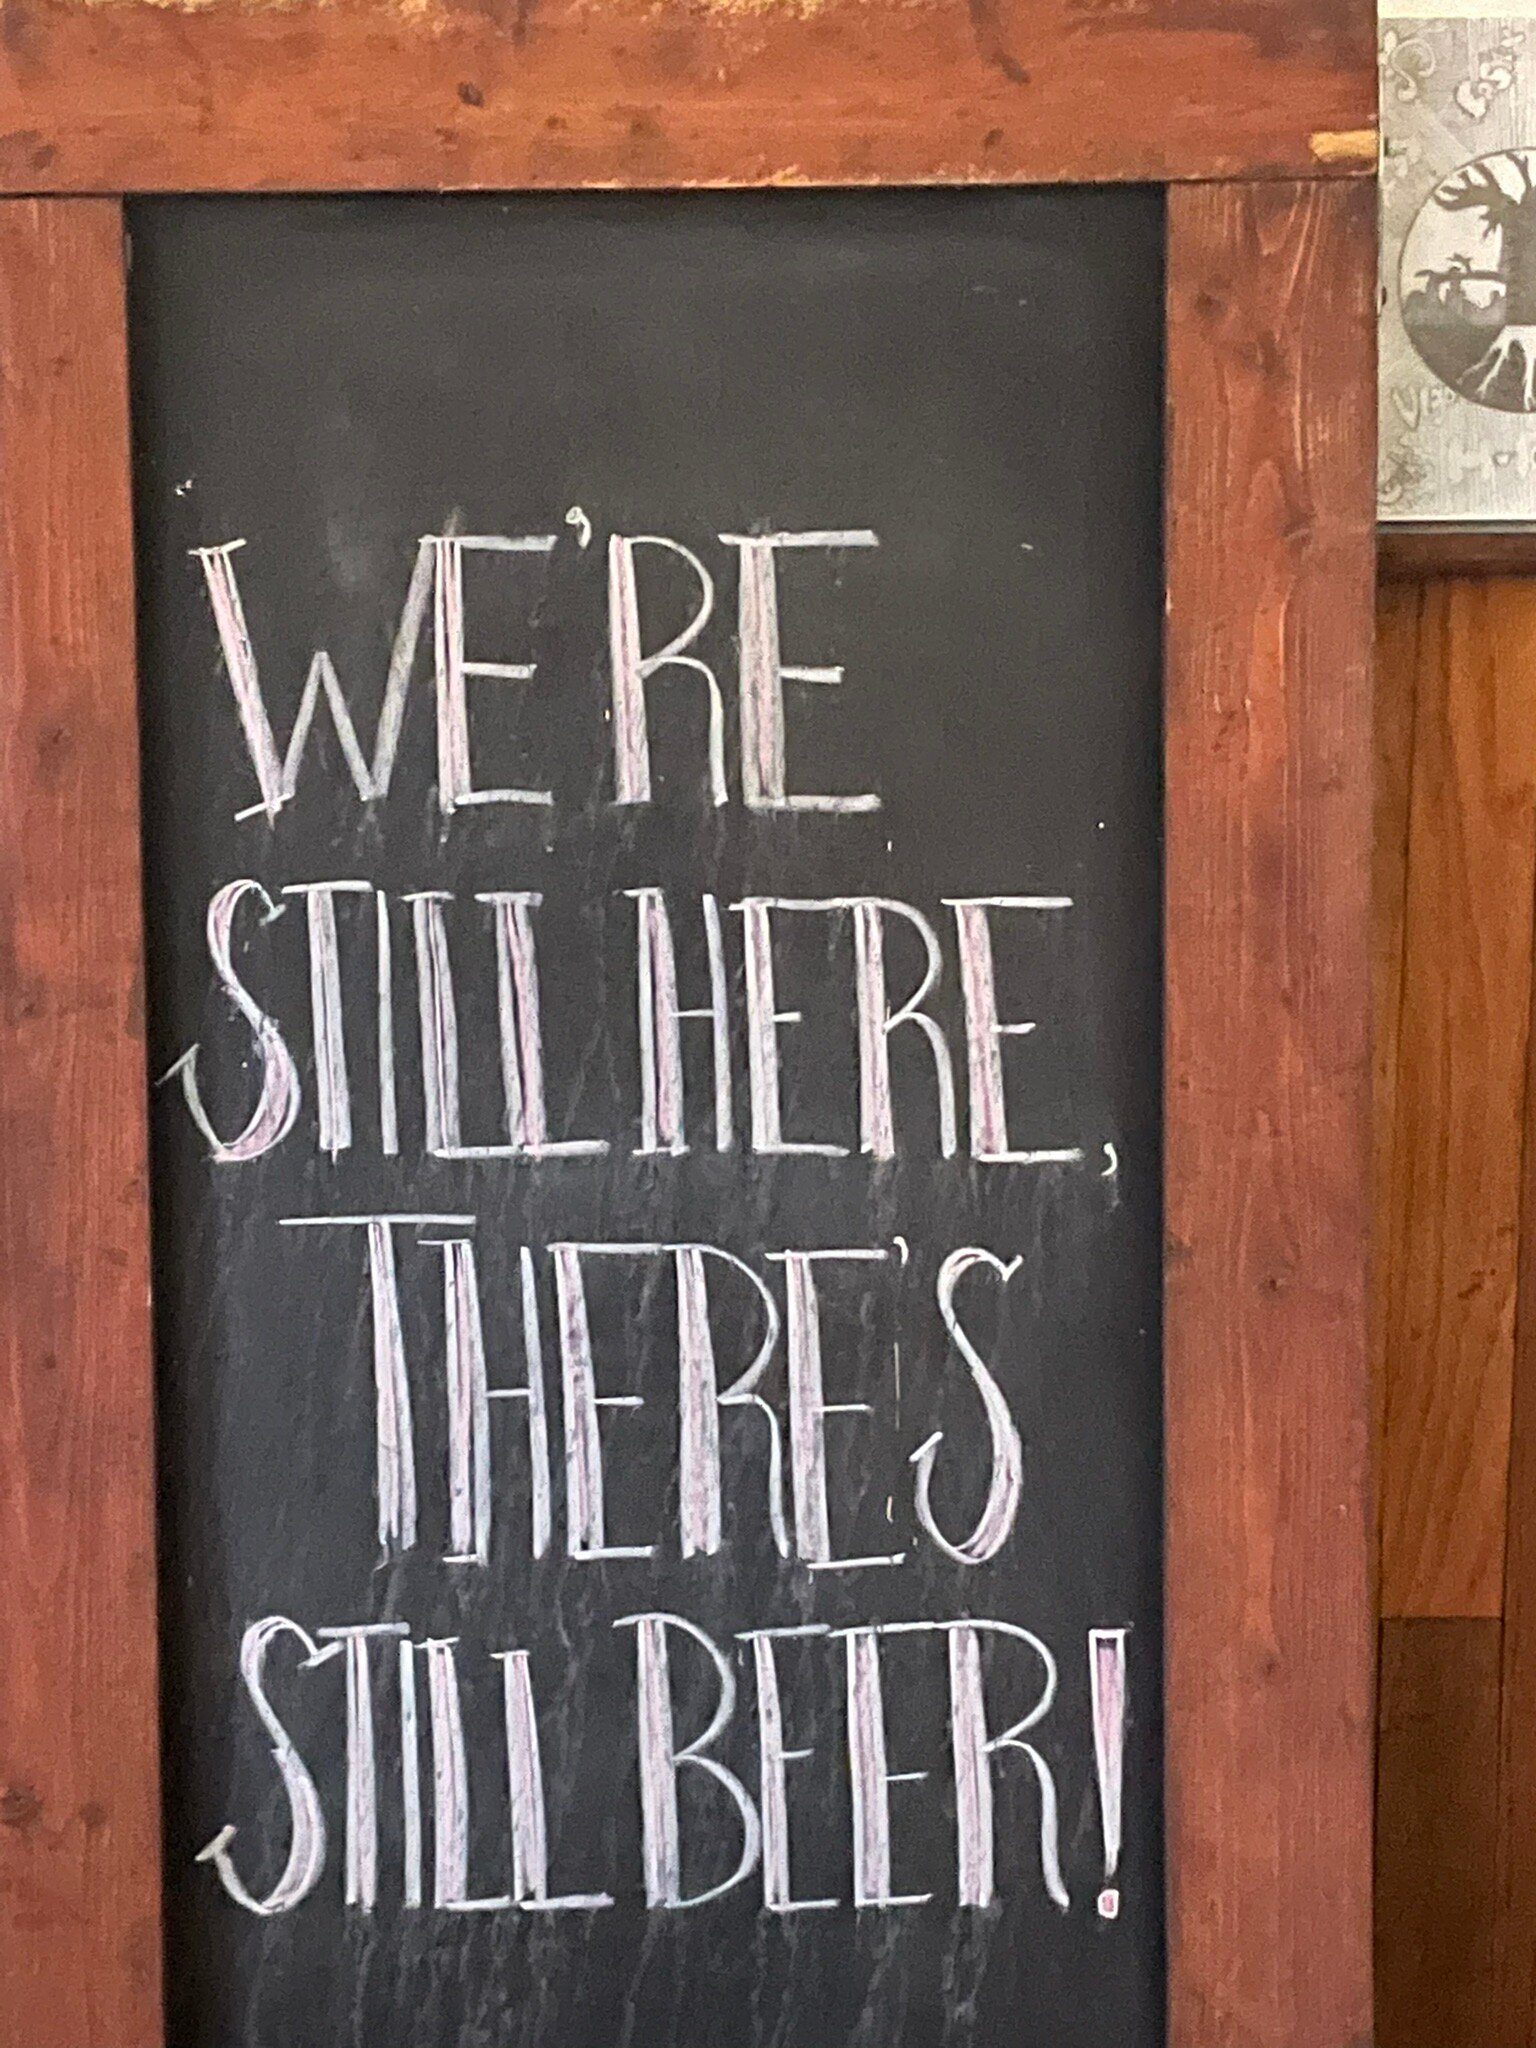 WE'RE
STILL HERE,
THERE'S
STILL BEER!